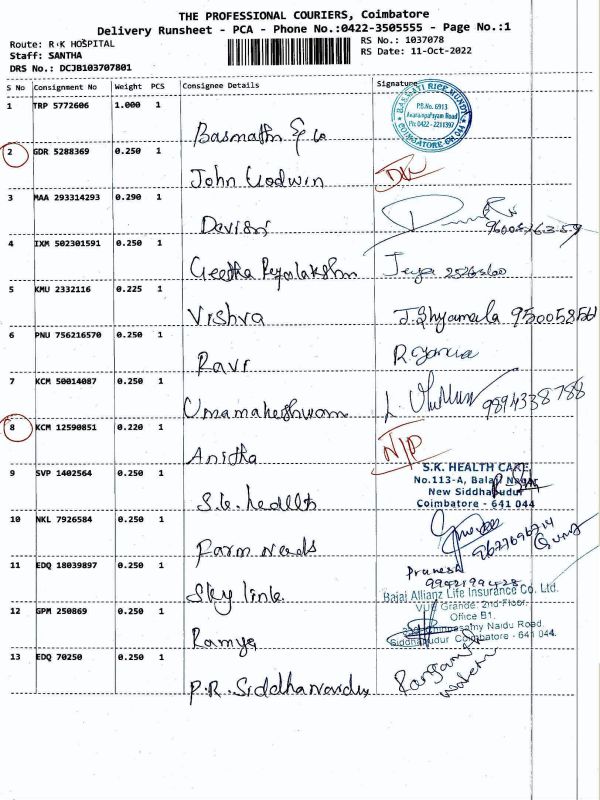 THE PROFESSIONAL COURIERS, Coimbatore
Delivery Runsheet - PCA - Phone No.:0422-3505555 - Page No.:1
Route: R·K HOSPITAL RS No.: 1037078
Staff: SANTHA RS Date: 11-Oct-2022
DRS No.: DCJB103707801
S No Consignment No Weight PCS Consignee Details Signature
1 TRP 5772606 1.000 1
BASMATI RICE MUNDY
P.B.No. 6913
Ph: 0422 - 2211397
COIMATORE
2 GDR 5288369 0.250 1
John Godwin
3 MAA 293314293 0.290 1
4 IXM 502301591 0.250 1
Geetha Jeya
5 KMU 2332116 0.225 1
Vishva J. Shyamala
6 PNU 756216570 0.250 1
Ravi
7 KCM 50014087 0.250 1
Umamaheshwari 9894338788
8 KCM 12590851 0.220 1
Anitha N/P
S.K. HEALTH CARE
No.113-A, Balaji Nagar
New Siddhapudur
Coimbatore - 641 044
9 SVP 1402564 0.250 1
S.K. health
10 NKL 7926584 0.250 1
Farm needs
11 EDQ 18039897 0.250 1
Pranesh
Sky link
Bajaj Allianz Life Insurance Co. Ltd.
Grande: 2nd Floor,
Office B1,
Naidu Road
Siddhapudur Coimbatore - 641 044.
12 GPM 250869 0.250 1
Ramya
13 EDQ 70250 0.250 1
P.R. Siddha